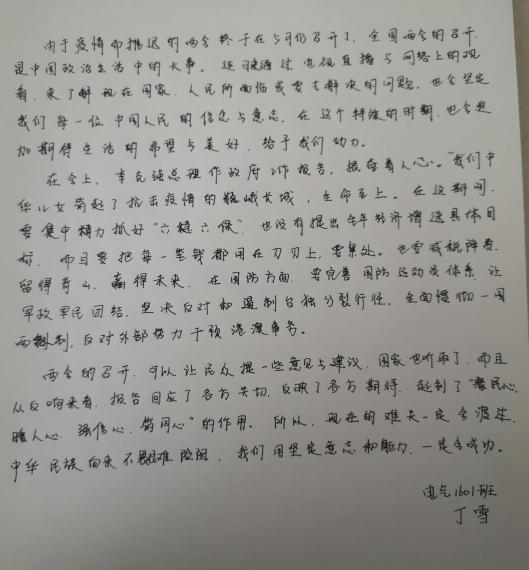 由于疫情而推迟的两会终于在5月份召开了，全国两会的召开，
是中国政治生活中的大事。 通过电视直播与网络上的观
看，来了解现在国家、人民所面临或要去解决的问题，也会坚定
我们每一位中国人民的信念与意志，在这个特殊的时期，也会更
加期待生活的希望与美好，给予我们动力。
在会上，李克强总理作政府工作报告，振奋着人心。“我们中
华儿女筑起了抗击疫情的巍峨长城，生命至上。在这期间，
要集中精力抓好“六稳六保”，也没有提出全年经济增速具体目
标，而且要把每一笔钱都用在刀刃上，要紧处。也要减税降费，
留得青山，赢得未来。在国防方面，要完善国防运动员体系，让
军政军民团结，坚决反对和遏制台独分裂行径，全面贯彻一国
两制，反对外部势力干预港澳事务。
两会的召开，可以让民众提一些意见与建议，国家也听取了，而且
从反响来看，报告回应了各方关切，反映了各方期待，起到了“聚民心，
暖人心，强信心，筑同心”的作用。所以，现在的难关一定会渡过，
中华民族向来不畏艰难险阻，我们用坚定意志和能力，一定会成功。
电气1601班
丁雪